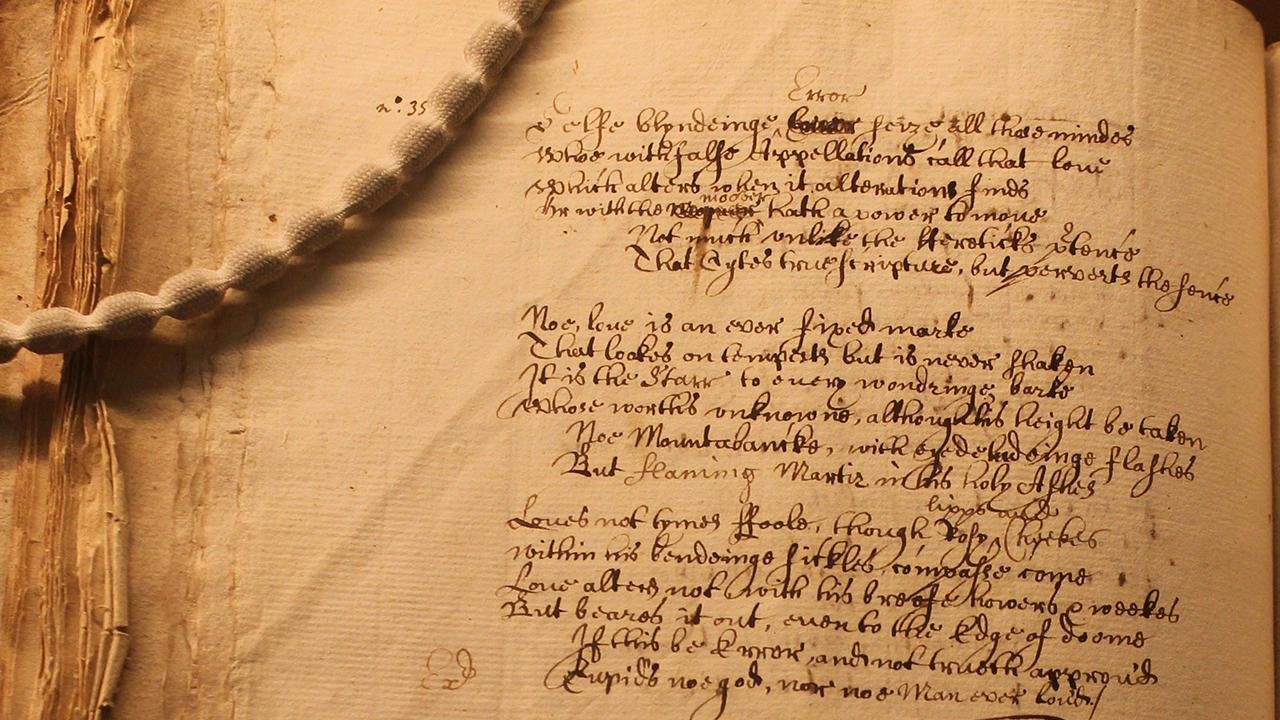 Error
n°. 35
Selfe blyndeinge seize all those mindes
Whoe with falsse Appellations call that loue
Which alters when it alterations finds
moover
Or with the hath a power to moue
Not much unlike the Hereticks p̄tence
That Cytes true scripture, but perverts the sence
Noe, loue is an ever fixed marke
That lookes on tempests but is never shaken
It is the Starr to euery wondringe barke
Whose worths unknowne, although his height be taken
Noe Mountabancke, with eyedeludeinge flashes
But flaming Martir in his holy Ashes
lipps and
Loues not tymes ffoole, though Rosy Cheekes
within his bendeinge sickles compasse come
Loue alters not with his breefe howers & weekes
But beares it out, even to the Edge of doome
If this be Error and not trueth approu'd
Cupids noe god, nor noe Man ever lou'd